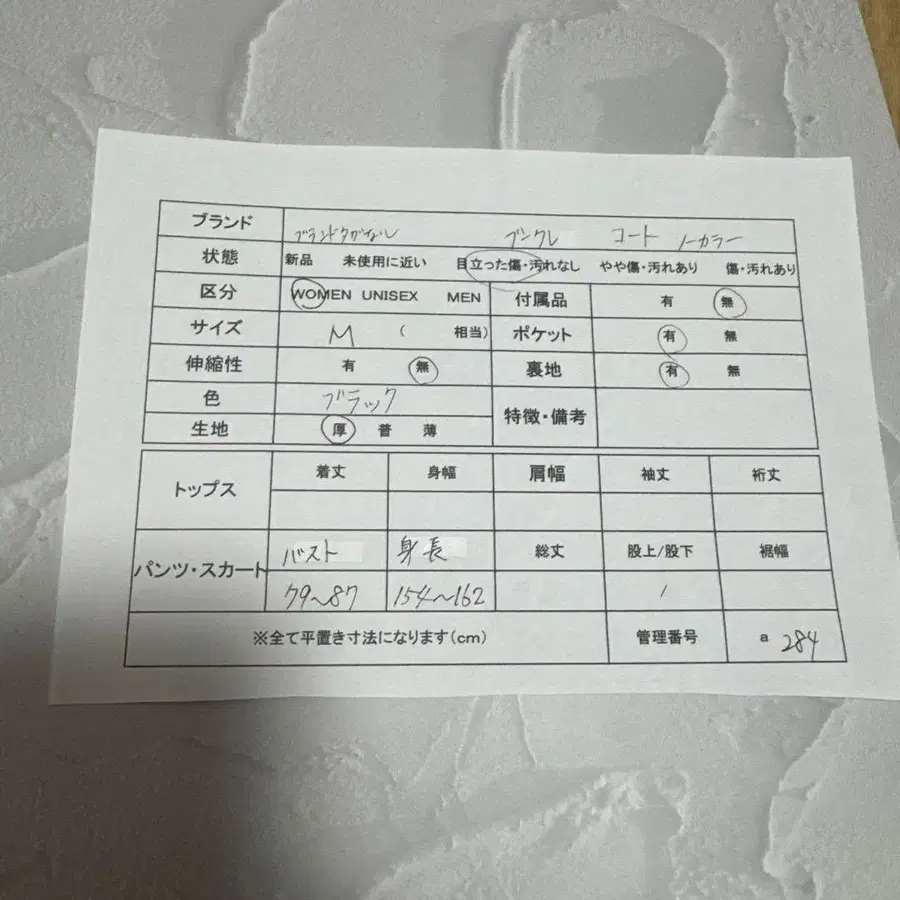 ブランド ブランドタグなし ブークレ コート ノーカラー
状態 新品 未使用に近い 目立った傷・汚れなし やや傷・汚れあり 傷・汚れあり
区分 WOMEN UNISEX MEN 付属品 有 無
サイズ M ( 相当) ポケット 有 無
伸縮性 有 無 裏地 有 無
色 ブラック 特徴・備考
生地 厚 普 薄
トップス 着丈 身幅 肩幅 袖丈 裄丈
パンツ・スカート バスト 身長 総丈 股上/股下 裾幅
79～87 154～162 /
※全て平置き寸法になります(cm) 管理番号 a 284